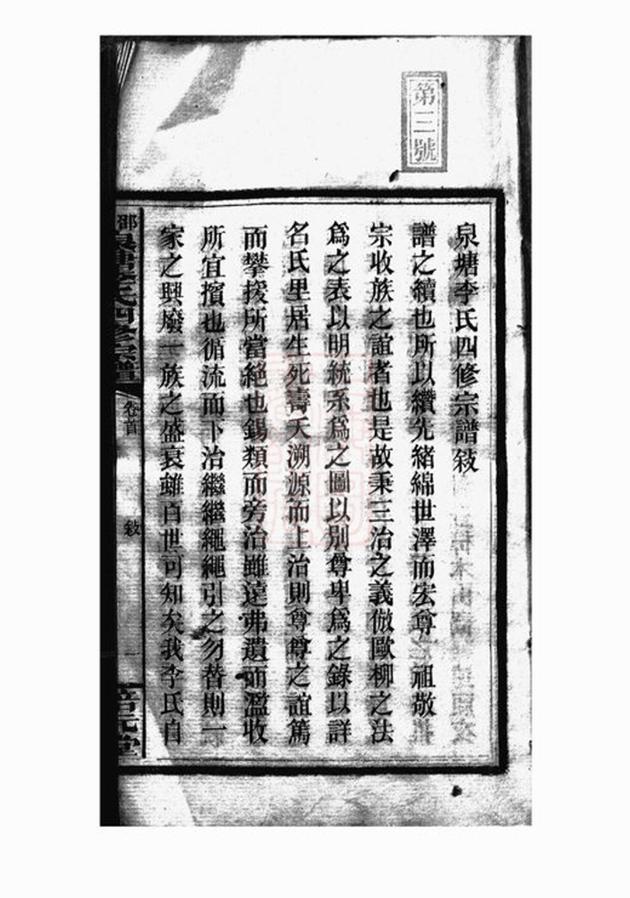 第三號
泉塘李氏四修宗譜敍
譜之續也所以纘先緒綿世澤而宏尊 祖敬
宗收族之誼者也是故秉三治之義倣歐柳之法
爲之表以明統系爲之圖以別尊卑爲之錄以詳
名氏里居生死壽夭溯源而上治則尊尊之誼篤
而攀援所當絕也錫類而旁治雖遠弗遺而濫收
所宜擯也循流而下治繼繼繩繩引之勿替則一
家之興廢一族之盛衰雖百世可知矣我李氏自
泉塘李氏四修宗譜
卷首
敍
一